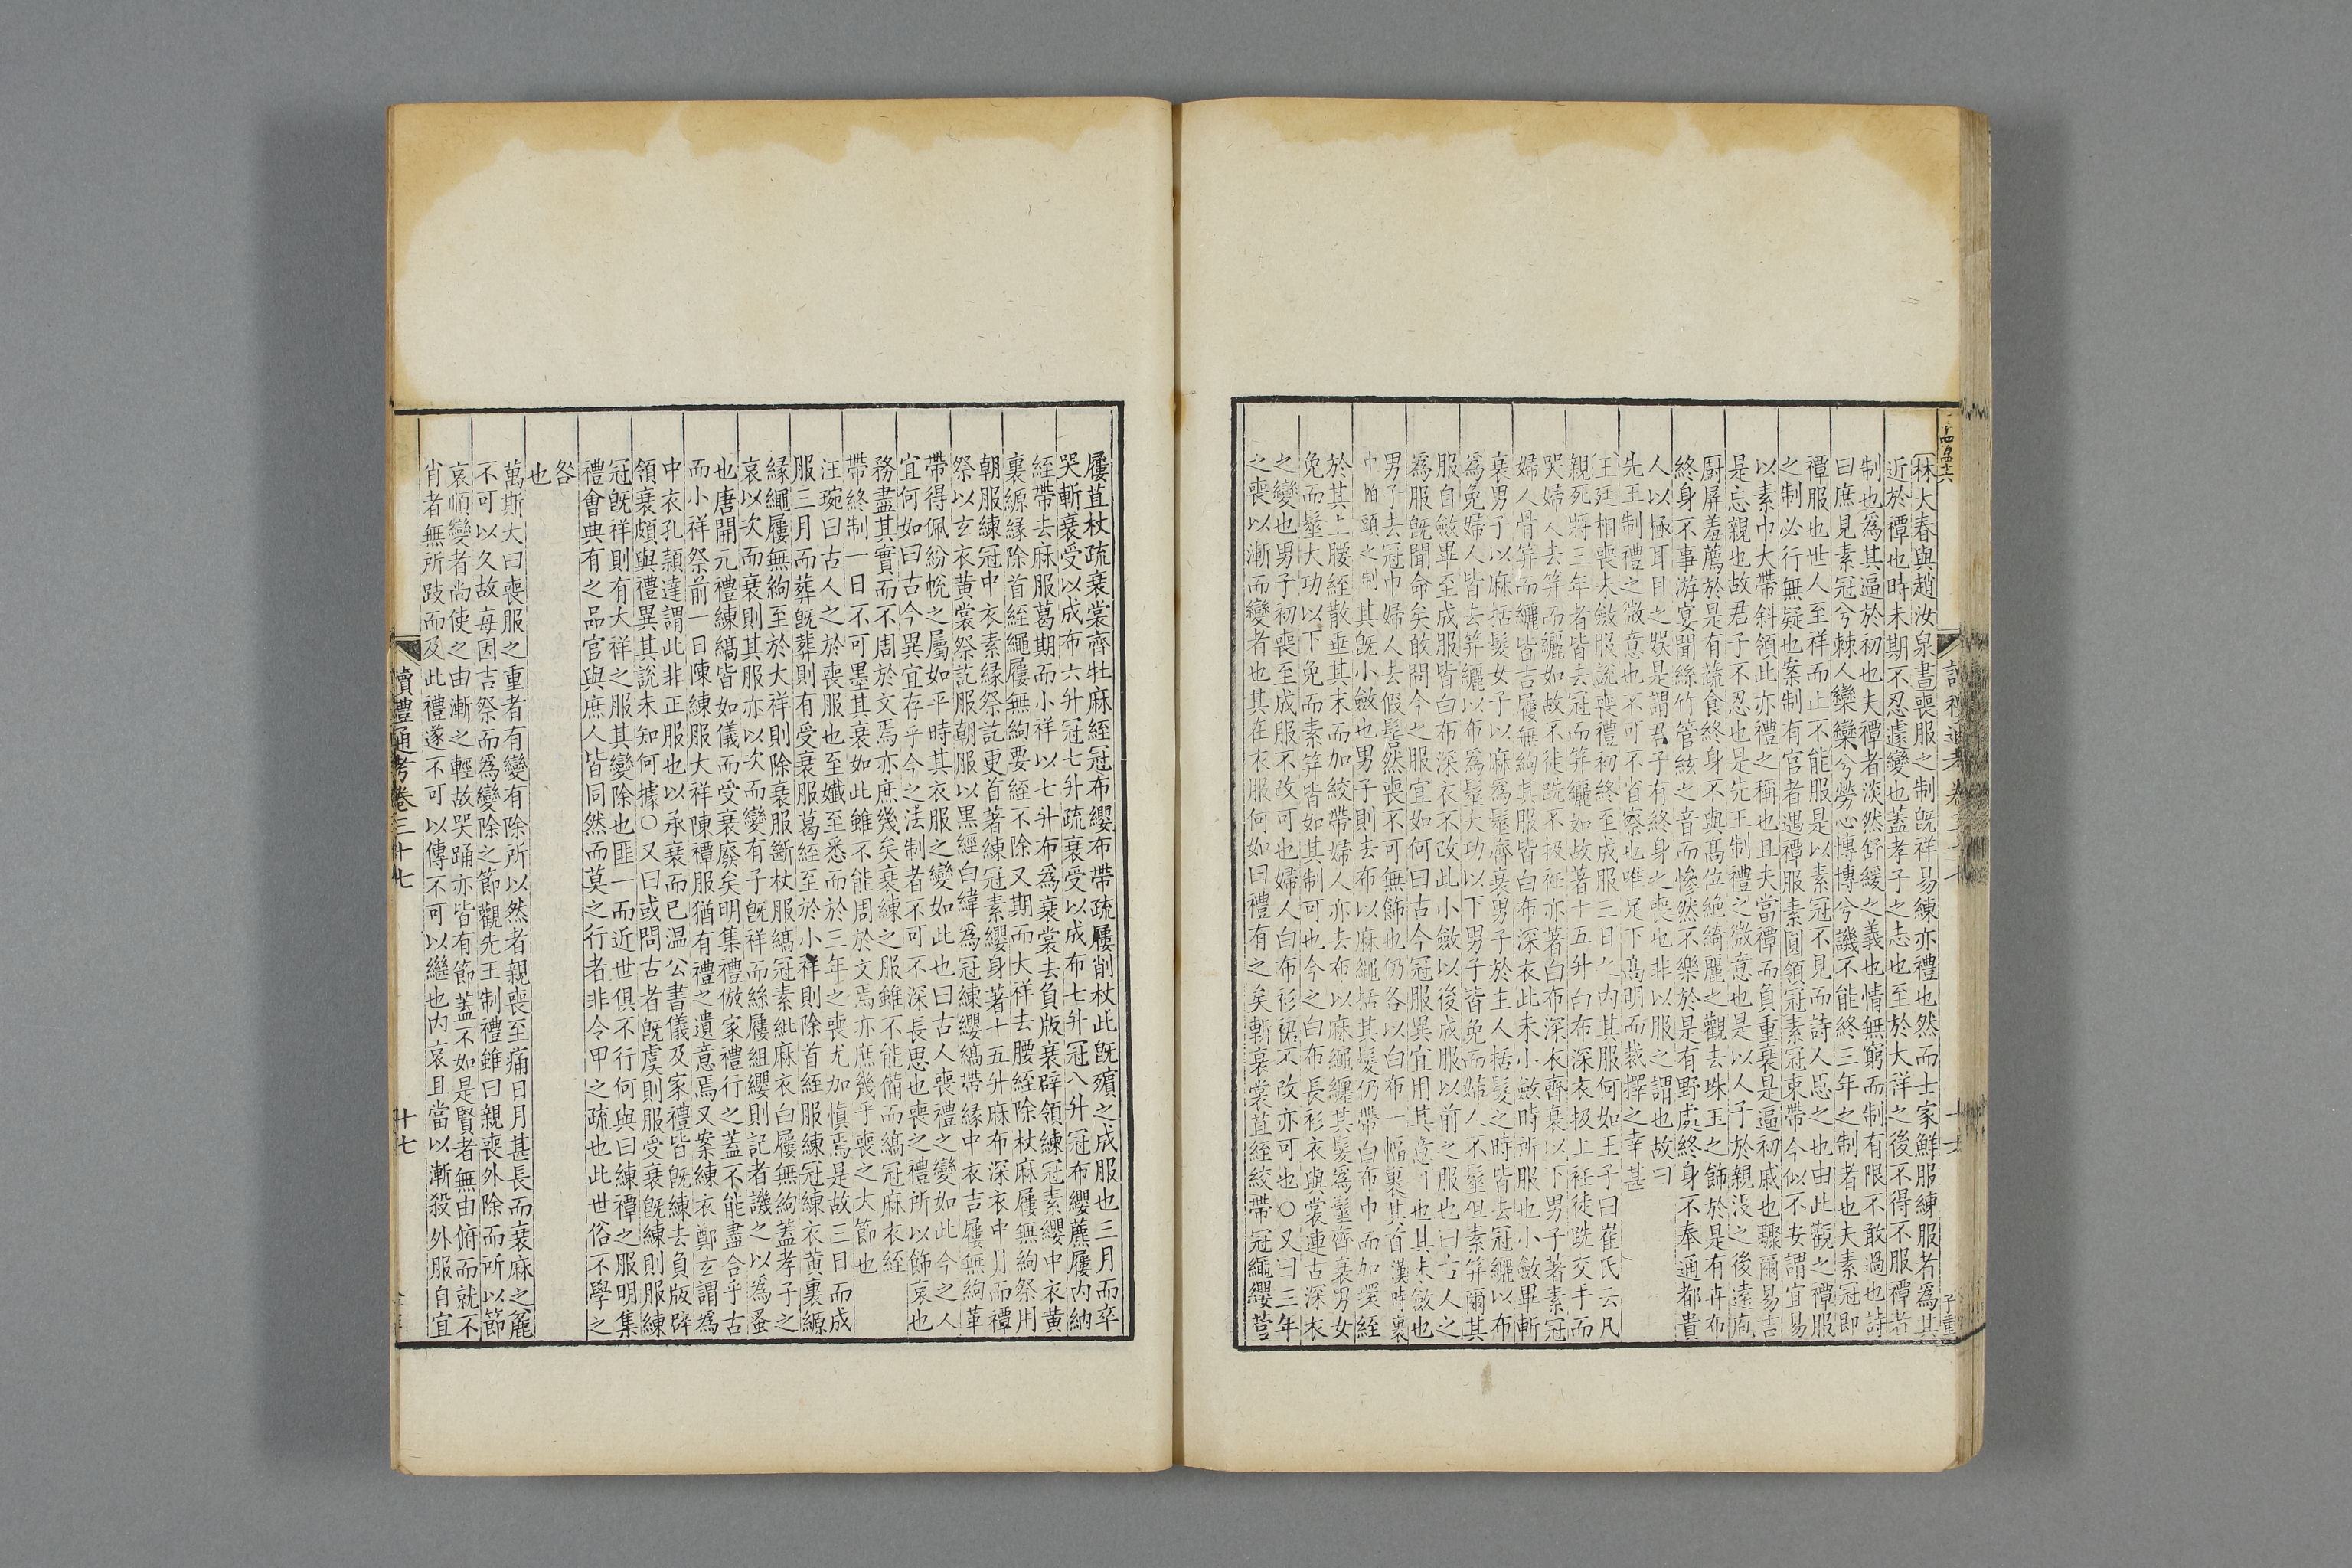 林大春與趙汝泉書喪服之制旣祥易練亦禮也然而士家鮮服練服者爲其
近於禫也時未期不忍遽變也蓋孝子之志也至於大祥之後不得不服禫者
制也爲其逼於初也夫禫者淡然舒緩之義也情無窮而制有限不敢過也詩
曰庶見素冠兮棘人欒欒兮勞心慱慱兮譏不能終三年之制者也夫素冠即
禫服也世人至祥而止不能服是以素冠不見而詩人惡之也由此觀之禫服
之制必行無疑也案制有官者遇禫服素圓領冠素冠束帶今似不安謂宜易
以素巾大帶斜領此亦禮之稱也且夫當禫而負重衰是逼初戚也驟爾易吉
是忘親也故君子不忍也是先王制禮之微意也是以人子於親喪之後遠庖
廚屏羞薦於是有蔬食終身不與高位絶綺麗之觀去珠玉之飾於是有卉布
終身不事游宴聞絲竹管絃之音而慘然不樂於是有野處終身不奉通都貴
人以極耳目之娛是謂君子有終身之喪也非以服之謂也故曰
先王制禮之微意也不可不省察也唯足下高明而裁擇之幸甚
王廷相喪未斂服說喪禮初終至成服三日之内其服何如王子曰崔氏云凡
親死將三年者皆去冠而筓纚如故著十五升白布深衣扱上衽徒跣交手而
哭婦人去筓而纚如故不徒跣不扱衽亦著白布深衣齊衰以下男子著素冠
婦人骨筓而纚皆吉屨無絇其服皆白布深衣此未小斂時所服也小斂畢斬
衰男子以麻括髮女子以麻爲髽齊衰男子於主人括髮之時皆去冠纚以布
爲免婦人皆去筓纚以布爲髽大功以下男子皆免而婦人不髽但素筓爾其
服自斂畢至成服皆白布深衣不改此小斂以後成服以前之服也曰古人之
爲服旣聞命矣敢問今之服宜如何曰古今冠服異宜用其意可也其未斂也
男子去冠巾婦人去假髻然喪不可無飾也仍各以白布一幅裹其首漢時裹
巾帕頭之制其旣小斂也男子則去布以麻繩括其髮仍帶白布巾而加環絰
於其上腰絰散垂其末而加絞帶婦人亦去布以麻繩纏其髮爲髽齊衰男女
免而髽大功以下免而素筓皆如其制可也今之白布長衫衣與裳連古深衣
之變也男子初喪至成服不改可也婦人白布衫裙不改亦可也○又曰三年
之喪以漸而變者也其在衣服何如曰禮有之矣斬衰裳苴絰絞帶冠繩纓菅
屨苴杖疏衰裳齊牡麻絰冠布纓布帶疏屨削杖此旣殯之成服也三月而卒
哭斬衰受以成布六升冠七升疏衰受以成布七升冠八升冠布纓藨屨内納
絰帶去麻服葛期而小祥以七升布爲衰裳去負版衰辟領練冠素纓中衣黄
裏縓緣除首絰繩屨無絇要絰不除又期而大祥去腰絰除杖麻屨無絇祭用
朝服練冠中衣素緣祭訖更首著練冠素纓身著十五升麻布深衣中月而禫
祭以玄衣黄裳祭訖服朝服以黑經白緯爲冠練纓縞帶緣中衣吉屨無絇革
帶得佩紛帨之屬如平時其衣服之變如此也曰古人喪禮之變如此今之人
宜何如曰古今異宜存乎今之法制者不可不深長思也喪之禮所以飾哀也
務盡其實而不周於文焉亦庶幾矣衰練之服雖不能備而縞冠麻衣絰
帶終制一日不可墨其衰如此雖不能周於文焉亦庶幾乎喪之大節也
汪琬曰古人之於喪服也至纖至悉而於三年之喪尤加愼焉是故三日而成
服三月而葬旣葬則有受衰服葛絰至於小祥則除首絰服練冠練衣黄裏縓
緣繩屨無絇至於大祥則除衰服斷杖服縞冠素紕麻衣白屨無絇蓋孝子之
哀以次而衰則其服亦以次而變有子旣祥而絲屨組纓則記者譏之以爲蚤
也唐開元禮練縞皆如儀而受衰廢矣明集禮倣家禮行之蓋不能盡合乎古
而小祥祭前一日陳練服大祥陳禫服猶有禮之遺意焉又案練衣鄭玄謂爲
中衣孔頴達謂此非正服也以承衰而已温公書儀及家禮皆旣練去負版辟
領衰頗與禮異其說未知何據○又曰或問古者旣虞則服受衰旣練則服練
冠旣祥則有大祥之服其變除也匪一而近世俱不行何與曰練禫之服明集
禮會典有之品官與庶人皆同然而莫之行者非今甲之疏也此世俗不學之
咎
也
萬斯大曰喪服之重者有變有除所以然者親喪至痛日月甚長而衰麻之麤
不可以久故每因吉祭而爲變除之節觀先王制禮雖曰親喪外除而所以節
哀順變者尚使之由漸之輕故哭踊亦皆有節蓋不如是賢者無由俯而就不
肖者無所跂而及此禮遂不可以傳不可以繼也内哀且當以漸殺外服自宜
讀禮通考卷三十七
十七